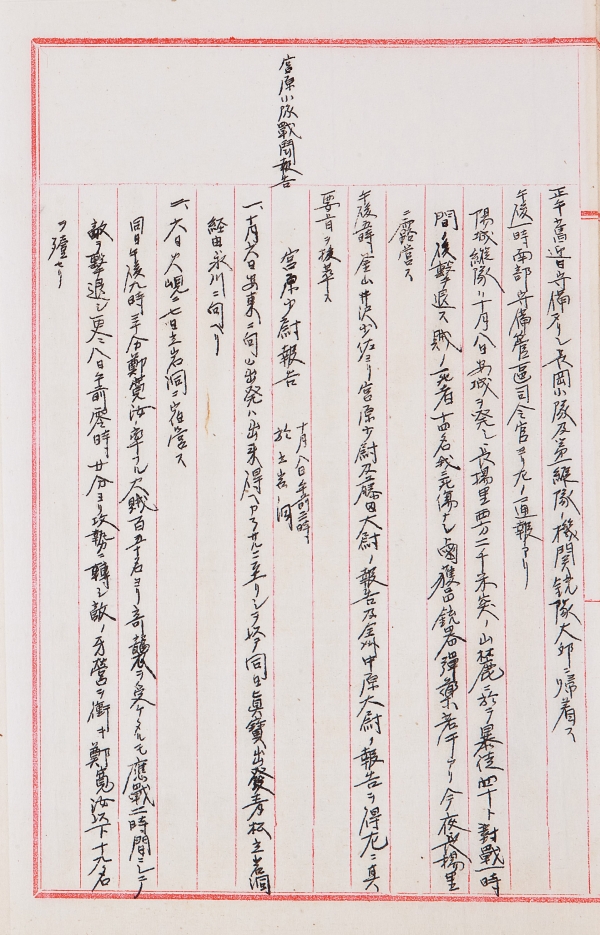 正午舊迎日守備アリシ長岡小隊及第一縦隊ノ機関銃隊大邱ニ帰着ス
午後一時南部守備管區司令官ヨリ左ノ通報アリ
陽城縦隊ハ十月八日安城ヲ発シ長楊里西方二千米突ノ山麓ニ於テ暴徒四十ト對戰一時
間ノ後撃退ス賊ノ死者十四名我死傷ナシ鹵獲品銃器彈藥若干アリ今夜長楊里
ニ露営ス
午後五時釜山井沢少佐ヨリ宮原少尉及藤田大尉ノ報告及全州中原大尉ノ報告ヲ得左ニ其
要旨ヲ後葉ス
宮原小隊戰鬪報告
宮原少尉報告 十月八日午前三時 於立岩洞
一、十月六日安東ニ向ヒ出発ハ出来得ヘカラサルニ至リシヲ以テ同日眞寶出發青松立岩洞
経由永川ニ向ヘリ
一、六日 峴七日立岩洞ニ宿営ス
同日午後九時三十分鄭寬汝ノ率フル 賊百五十名ヨリ奇襲ヲ受ケタルモ應戰二時間ニシテ
敵ヲ撃退シ更ニ八日午前零時廿分ヨリ攻勢ニ轉シ敵ノ牙營ヲ衝キ鄭寬汝以下十九名
ヲ殪セリ